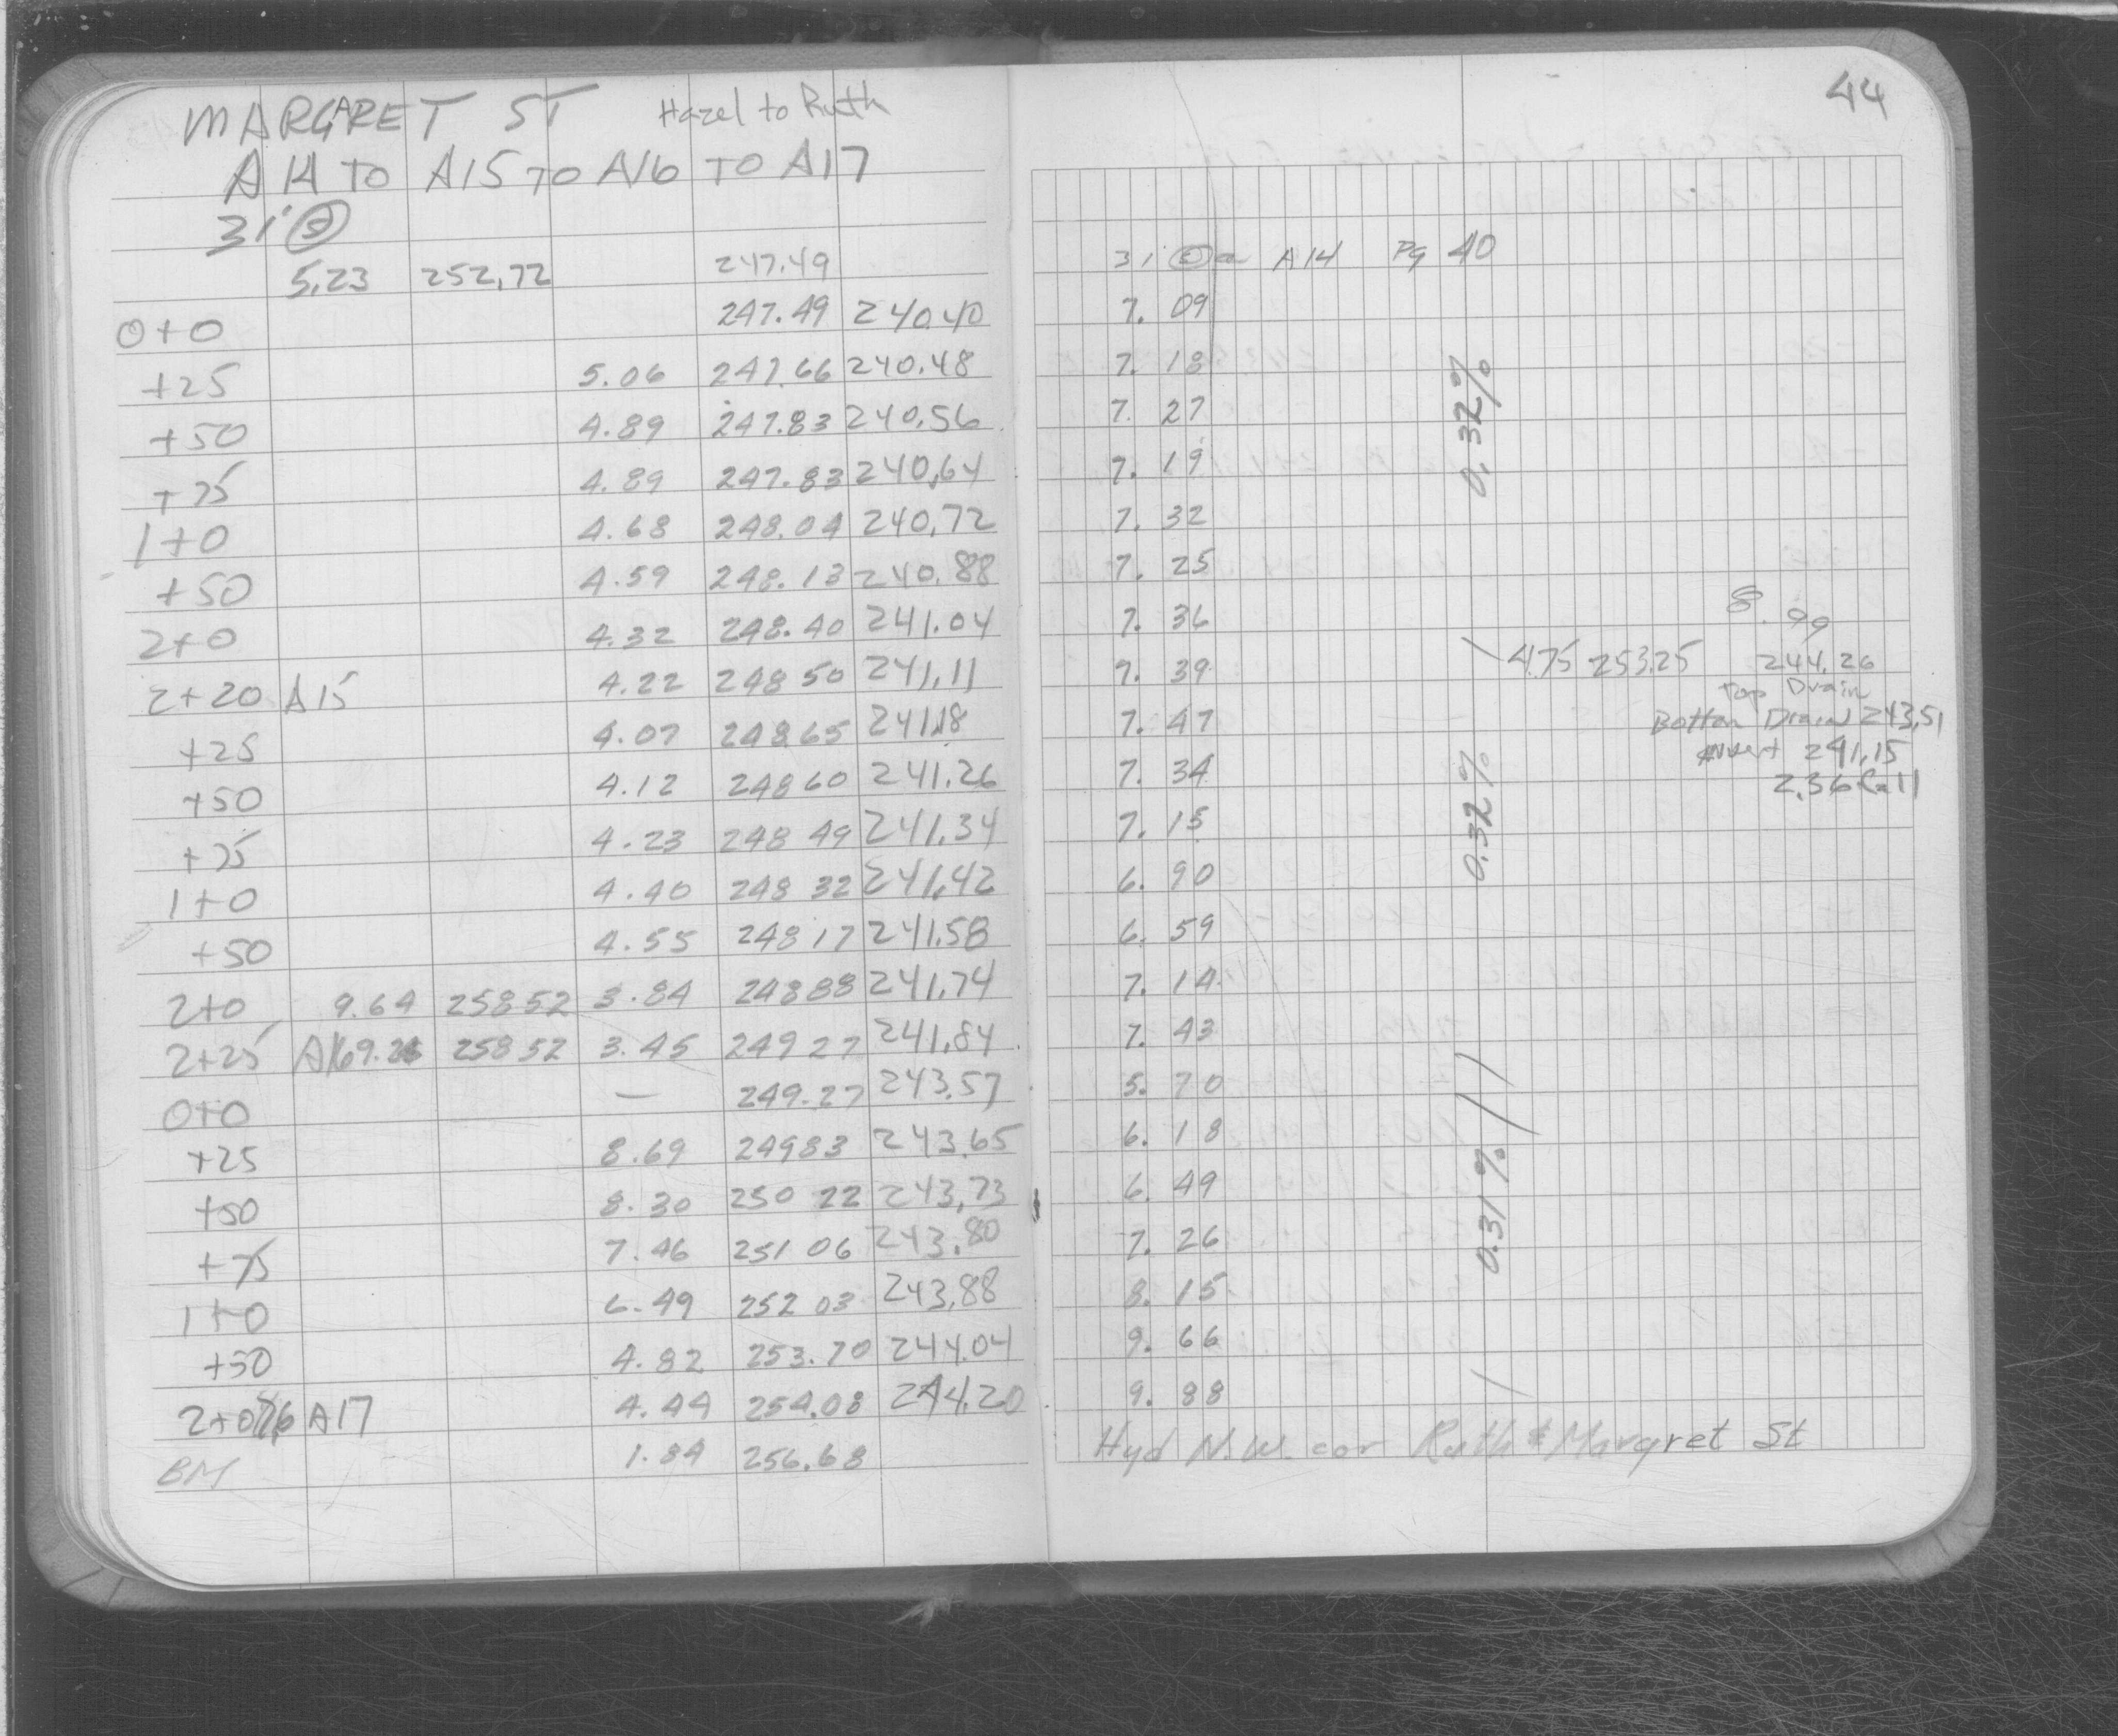 44
MARGARET ST Hazel to Ruth
A14 TO A15 TO A16 TO A17
5.23 252.72 247.49 A14 Pg 40
0+0 247.49 240.40 7.09
+25 5.06 247.66 240.48 7.18
+50 4.89 247.83 240.56 7.27
+75 4.89 247.83 240.64 7.19
1+0 4.68 248.04 240.72 7.32
+50 4.59 248.13 240.88 7.25
2+0 4.32 248.40 241.04 7.36
2+20 A15 4.22 248 50 241.11 7.39
+25 4.07 248.65 241.18 7.47
+50 4.12 248 60 241.26 7.34
+75 4.23 248 49 241.34 7.15
1+0 4.40 248 32 241.42 6.90
+50 4.55 248 17 241.58 6.59
2+0 9.64 258 52 3.84 248 88 241.74 7.14
2+25 A16 258 52 3.45 249 27 241.84 7.43
0+0 — 249.27 243.57 5.70
+25 8.69 249 83 243.65 6.18
+50 8.30 250 22 243.73 6.49
+75 7.46 251 06 243.80 7.26
1+0 6.49 252 03 243.88 8.15
+50 4.82 253.70 244.04 9.66
A17 4.44 254.08 244.20 9.88
BM 1.84 256.68 Hyd N.W. cor Ruth & Margret St
0.32%
0.32%
0.31%
8.99
4.75 253.25 244.26
Top Drain
Bottom Drain 243.51
invert 241.15
2.36